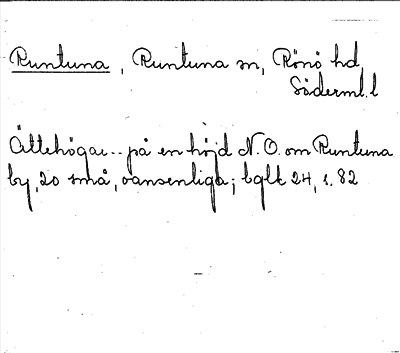 Runtuna, Runtuna sn, Rönö hd,
Söderml. l
Ättehögar.. på en höjd N.O. om Runtuna
by, 20 små, oansenliga; bglt 24, s. 82